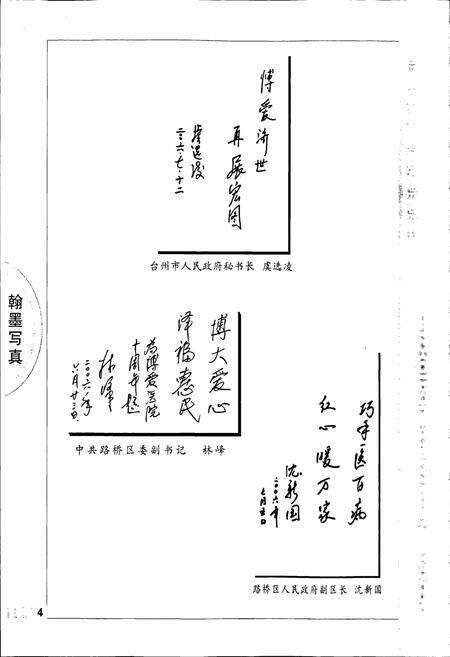 博爱济世
再展宏图
虞选凌
二〇〇六·七·十二
台州市人民政府秘书长 虞选凌
博大爱心
泽福惠民
为博爱医院
十周年题
林峰
二〇〇六年
六月廿三日
中共路桥区委副书记 林峰
巧手医百病
红心暖万家
沈新国
二〇〇六年
七月五日
路桥区人民政府副区长 沈新国
翰墨写真
4